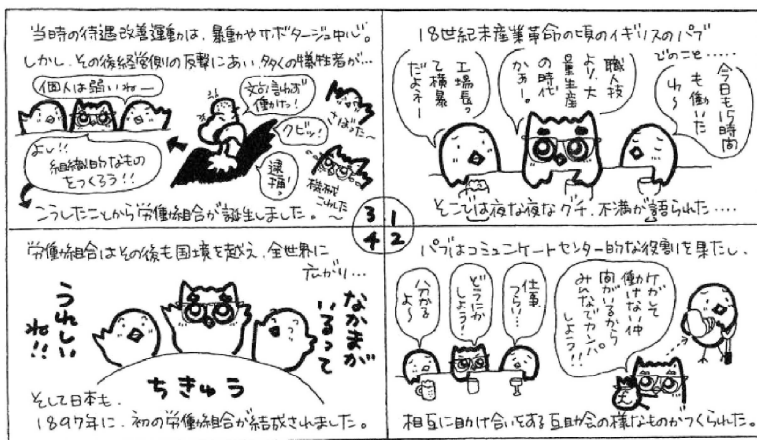 18世紀末産業革命の頃のイギリスのパブ
でのこと.....
今日も15時間
も働いた
わ〜
職人技
より、大
量生産
の時代
かぁー。
工場長っ
て横暴
だよネー
そこでは夜な夜なグチ、不満が語られた....
1
2
3
4
パブはコミュニケートセンター的な役割を果たし、
仕事
つらい…
どうにか
しよう!
分かる
よ〜
ケガして
働けない仲
間がいるから
みんなでカンパ
しよう!!
相互に助け合いをする互助会の様なものがつくられた。
当時の待遇改善運動は、暴動やサボタージュ中心。
しかし、その後経営側の反撃にあい、多くの犠牲者が…
文句言わず
働けっ!
クビッ!
逮捕!
さぼった〜
機械こわした〜
個人は弱いね―
よし!!
組織的なもの
をつくろう!!
こうしたことから労働組合が誕生しました。
労働組合はその後も国境を越え、全世界に
広がり…
なかまが
いるって
うれしい
ね!!
ちきゅう
そして日本も、
1897年に、初の労働組合が結成されました。